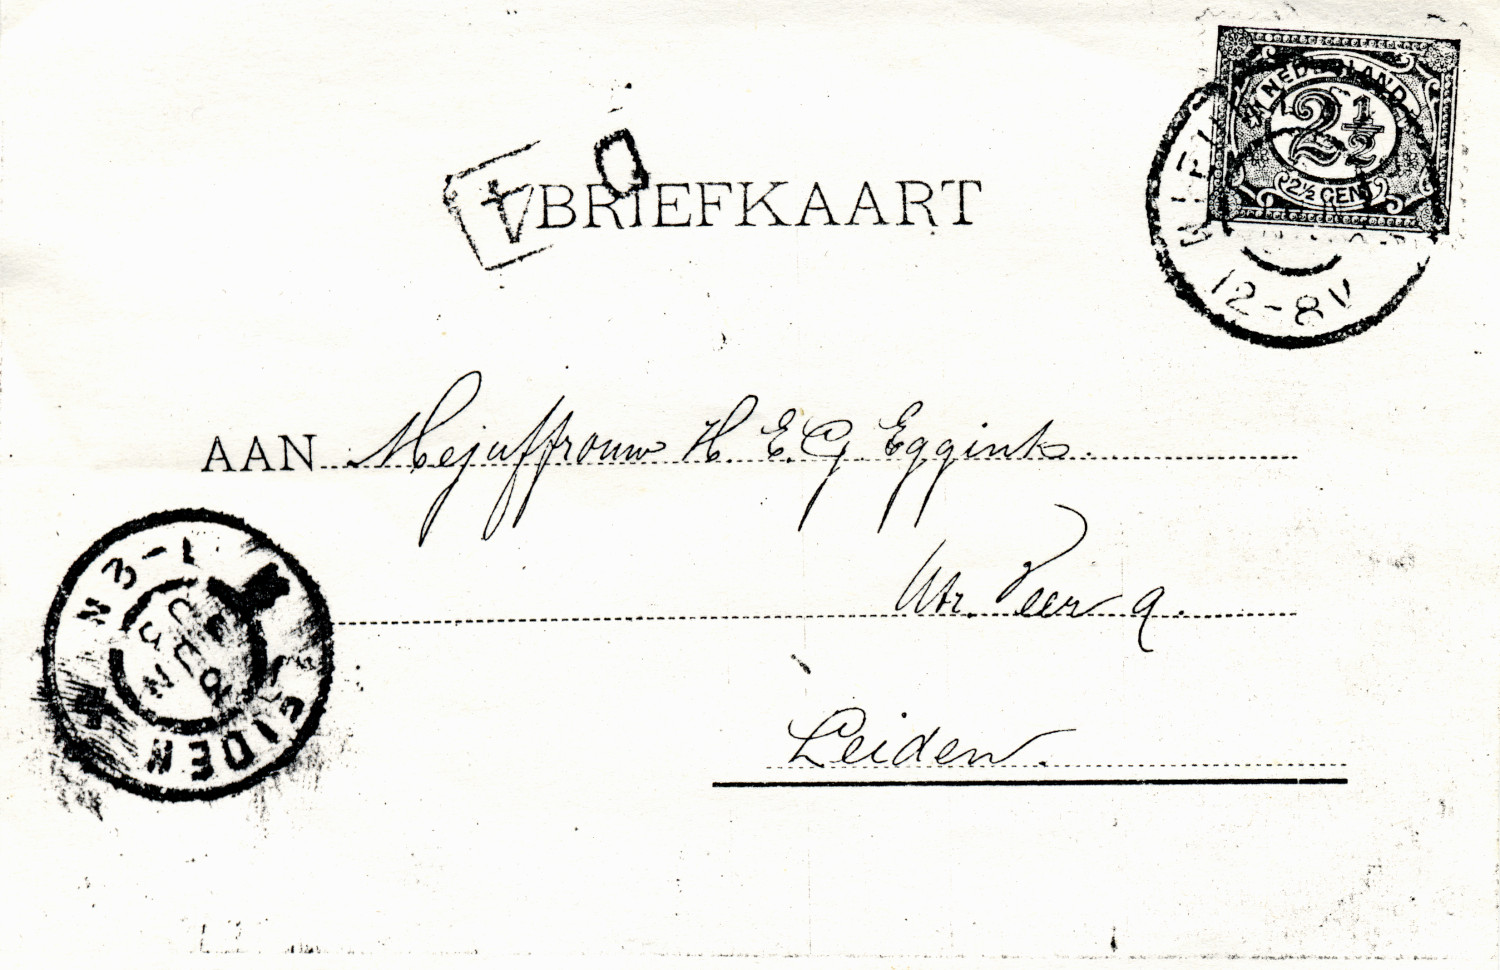 NEDERLAND
2½
2½ CENT
12-8V
4
BRIEFKAART
AAN Mejuffrouw H. E. G. Eggink.
Utr. Veer 9.
Leiden.
N 3-
LEIDEN